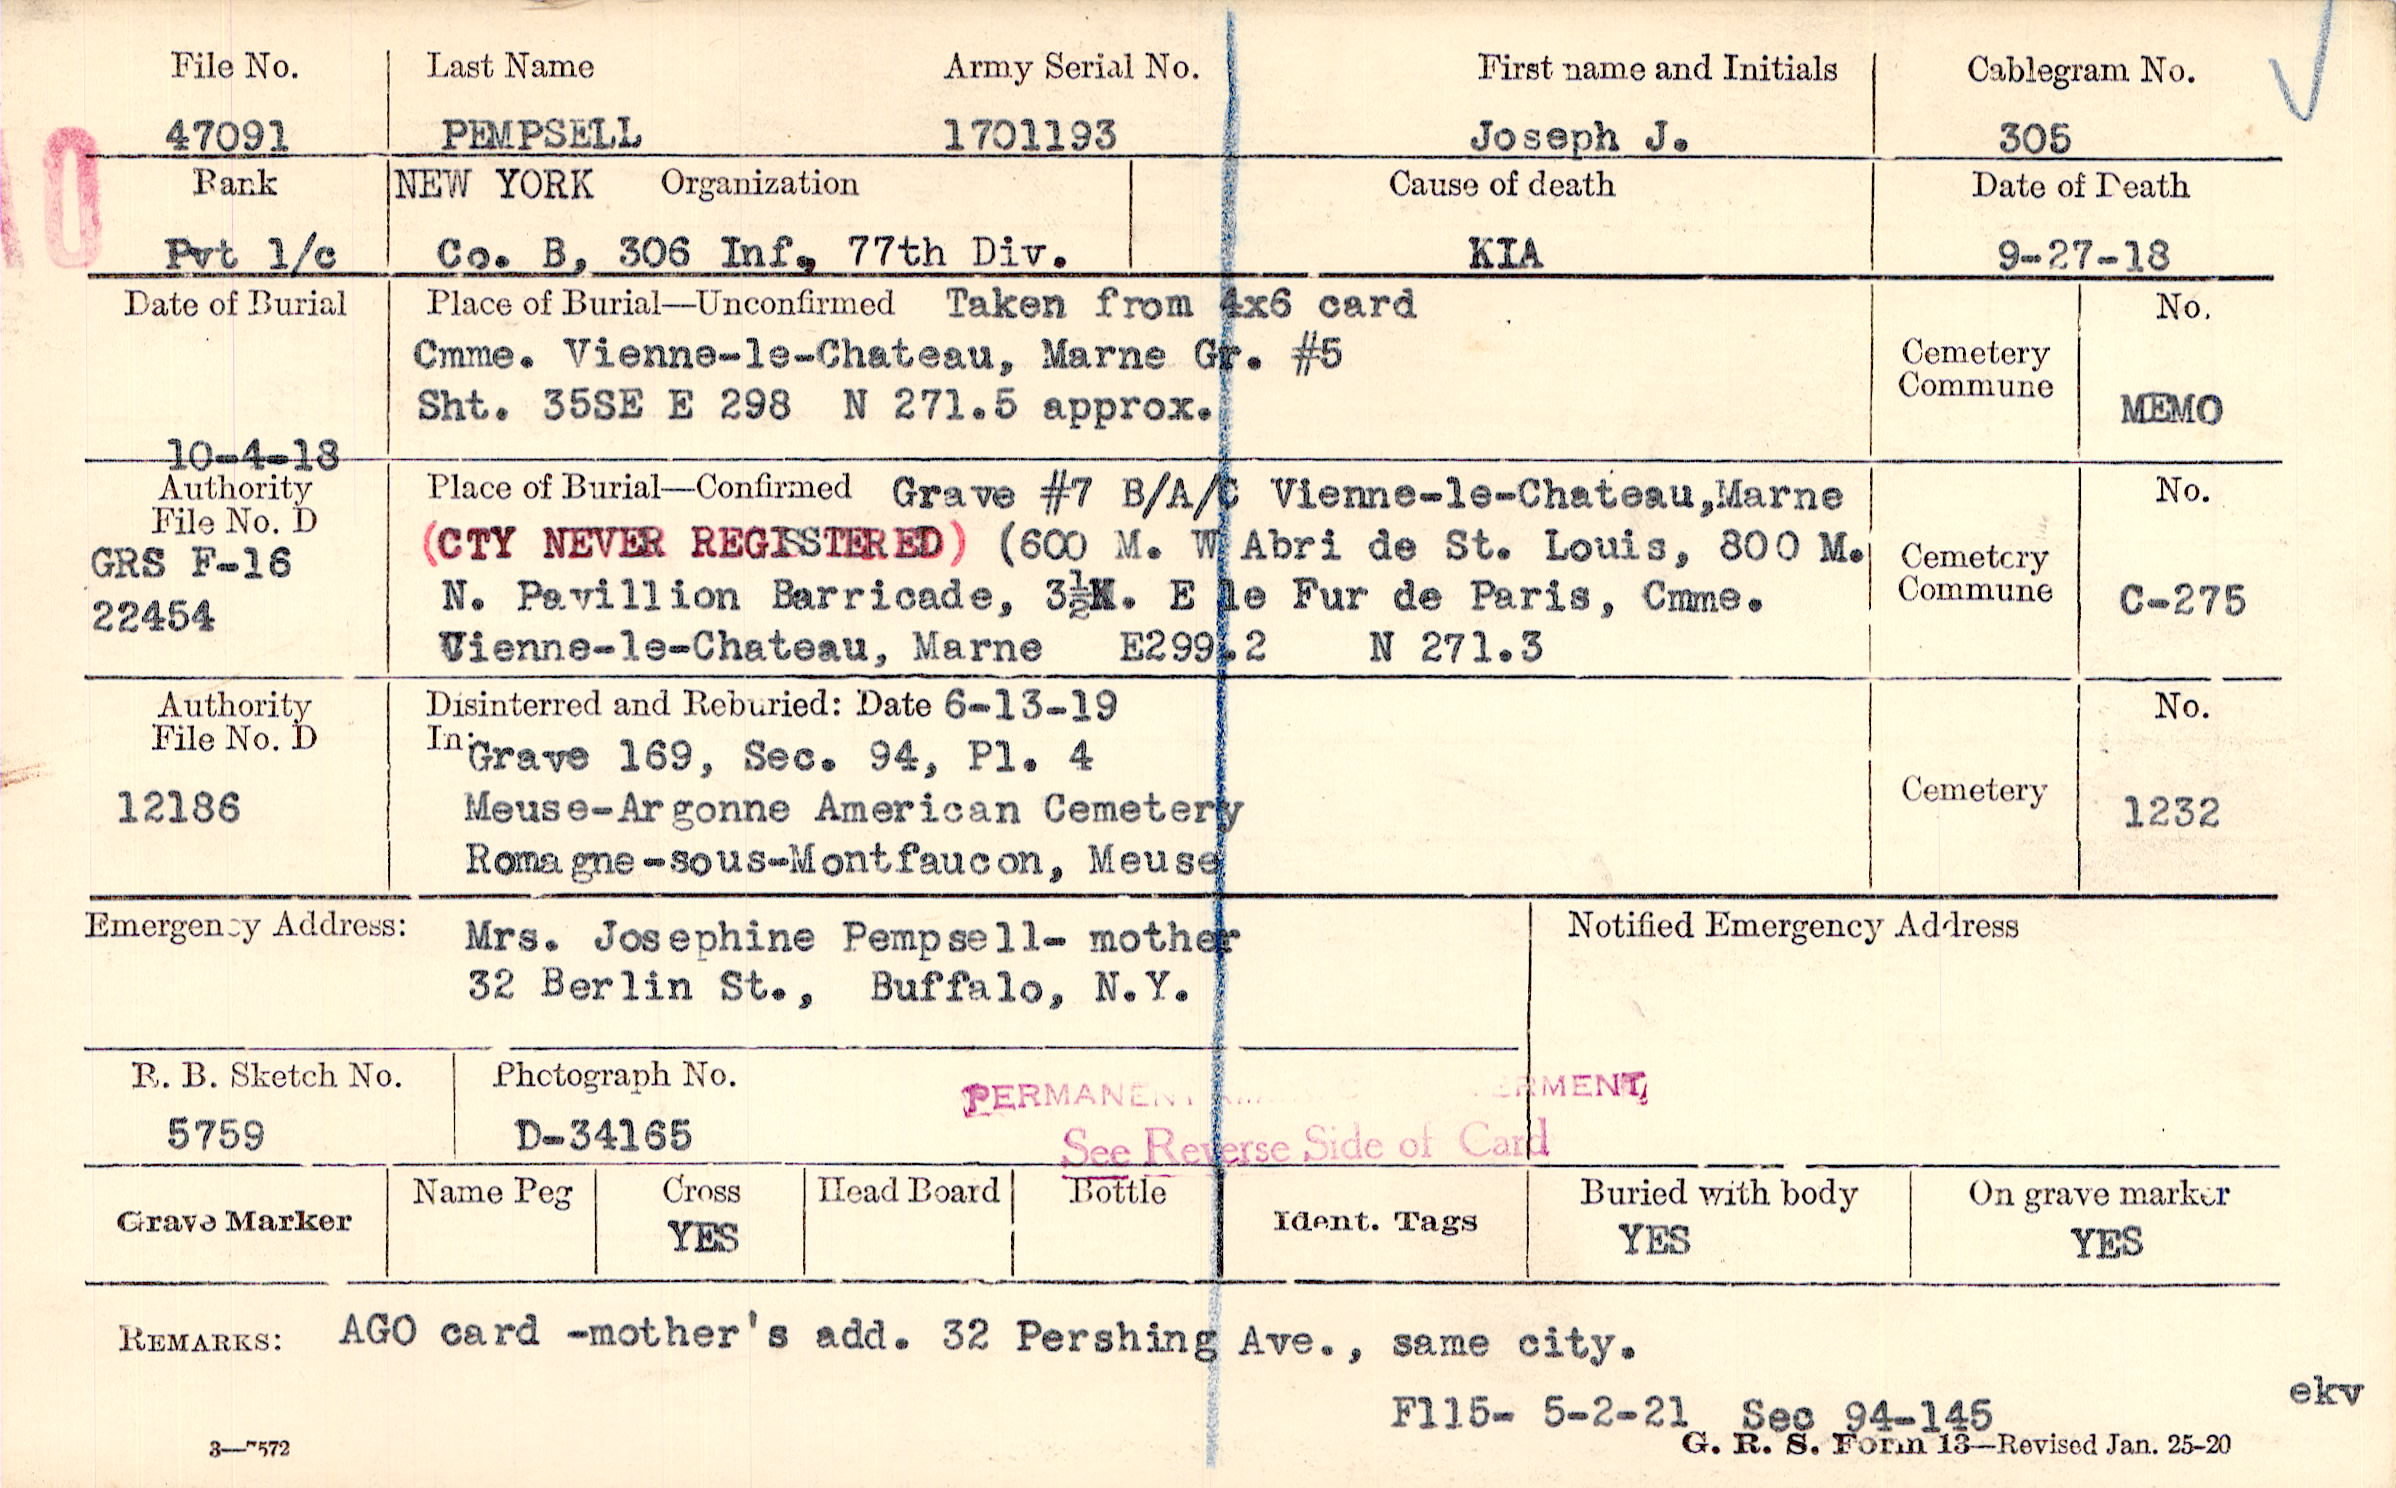 File No. Last Name Army Serial No. First name and Initials Cablegram No.
47091 PEMPSELL 1701193 Joseph J. 305
Rank NEW YORK Organization Cause of death Date of Death
Pvt 1/c Co. B, 306 Inf, 77th Div. KIA 9-27-18
Date of Burial Place of Burial—Unconfirmed Taken from 4x6 card No.
Cmme. Vienne-le-Chateau, Marne Gr. #5 Cemetery
Commune
Sht. 35SE E 298 N 271.5 approx. MEMO
10-4-18
Authority Place of Burial—Confirmed Grave #7 B/A/C Vienne-le-Chateau,Marne No.
File No. D
GRS F-16 (CTY NEVER REGISSTERED) (600 M. W Abri de St. Louis, 800 M. Cemetery
22454 N. Pavillion Barricade, 3½K. E le Fur de Paris, Cmme. Commune C-275
Vienne-le-Chateau, Marne E299.2 N 271.3
Authority Disinterred and Reburied: Date 6-13-19 No.
File No. D In: Grave 169, Sec. 94, Pl. 4
12186 Meuse-Argonne American Cemetery Cemetery 1232
Romagne-sous-Montfaucon, Meuse
Emergency Address: Mrs. Josephine Pempsell- mother Notified Emergency Address
32 Berlin St., Buffalo, N.Y.
R. B. Sketch No. Photograph No.
5759 D-34165
See Reverse Side of Card
Grave Marker Name Peg Cross Head Board Bottle Ident. Tags Buried with body On grave marker
YES YES YES
REMARKS: AGO card -mother's add. 32 Pershing Ave., same city.
ekv
F115- 5-2-21 Sec 94-145
3—7572 G. R. S. Form 13—Revised Jan. 25-20